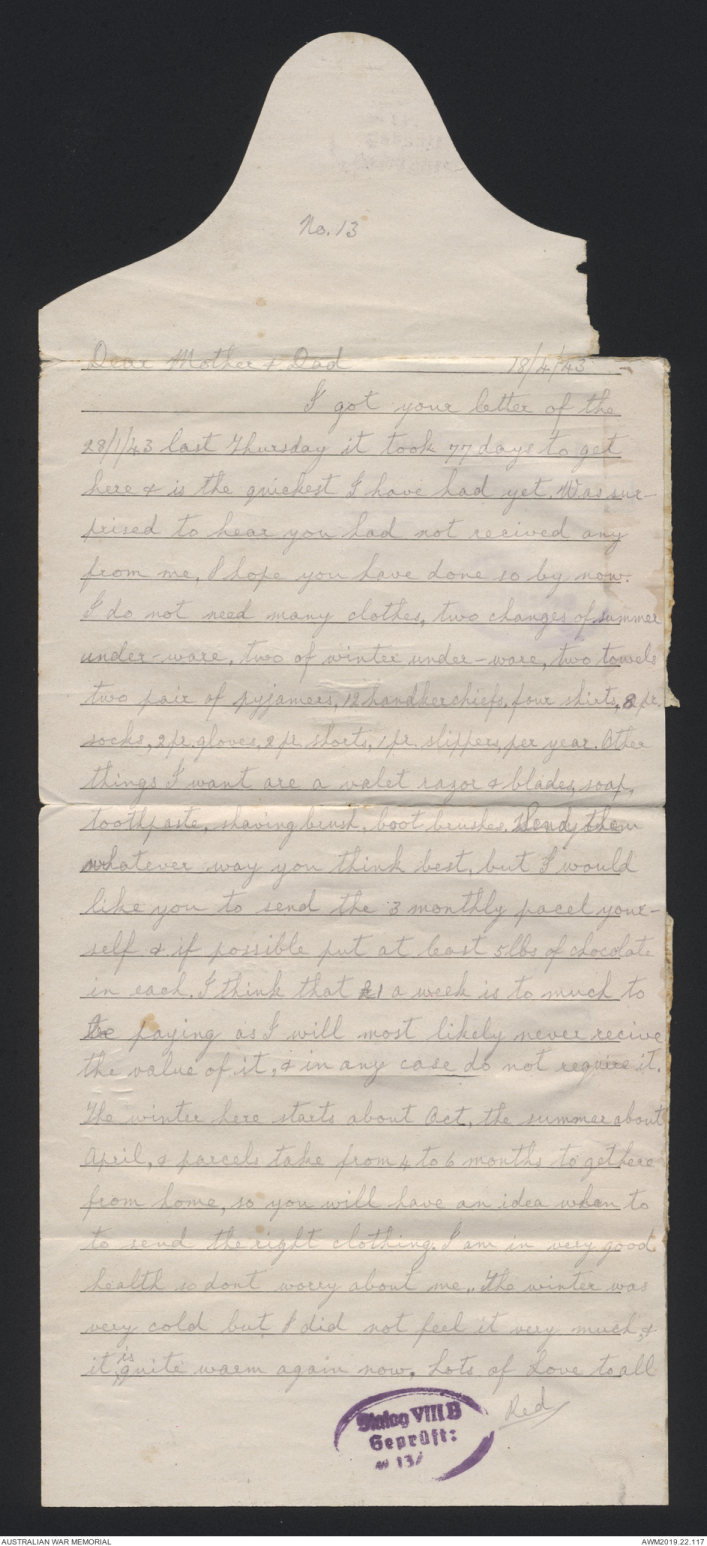 No. 13
Dear Mother & Dad 18/4/43
I got your letter of the
28/1/43 last Thursday it took 77 days to get
here & is the quickest I have had yet. Was sur-
prised to hear you had not recived any
from me, I hope you have done so by now.
I do not need many clothes, two changes of summer
under-ware, two of winter under-ware, two towels
two pair of pyjamers, 12 handkerchiefs, four shirts, 8 pr.
socks, 2 pr. gloves, 2 pr. shorts, 1 pr. slippers, per year. Other
things I want are a valet razor & blades, soap,
toothpaste, shaving brush, boot brushes, Send them
whatever way you think best, but I would
like you to send the 3 monthly pacel your-
self & if possible put at least 5lbs of chocolate
in each. I think that £1 a week is to much to
be paying as I will most likely never recive
the value of it, & in any case do not require it.
The winter here starts about Oct, the summer about
April, & parcels take from 4 to 6 months to get here
from home, so you will have an idea when to
to send the right clothing. I am in very good
health so dont worry about me. The winter was
very cold but I did not feel it very much, &
it is quite warm again now. Lots of Love to all
Red
Stalag VIII B
Geprüft:
AUSTRALIAN WAR MEMORIAL AWM2019.22.117